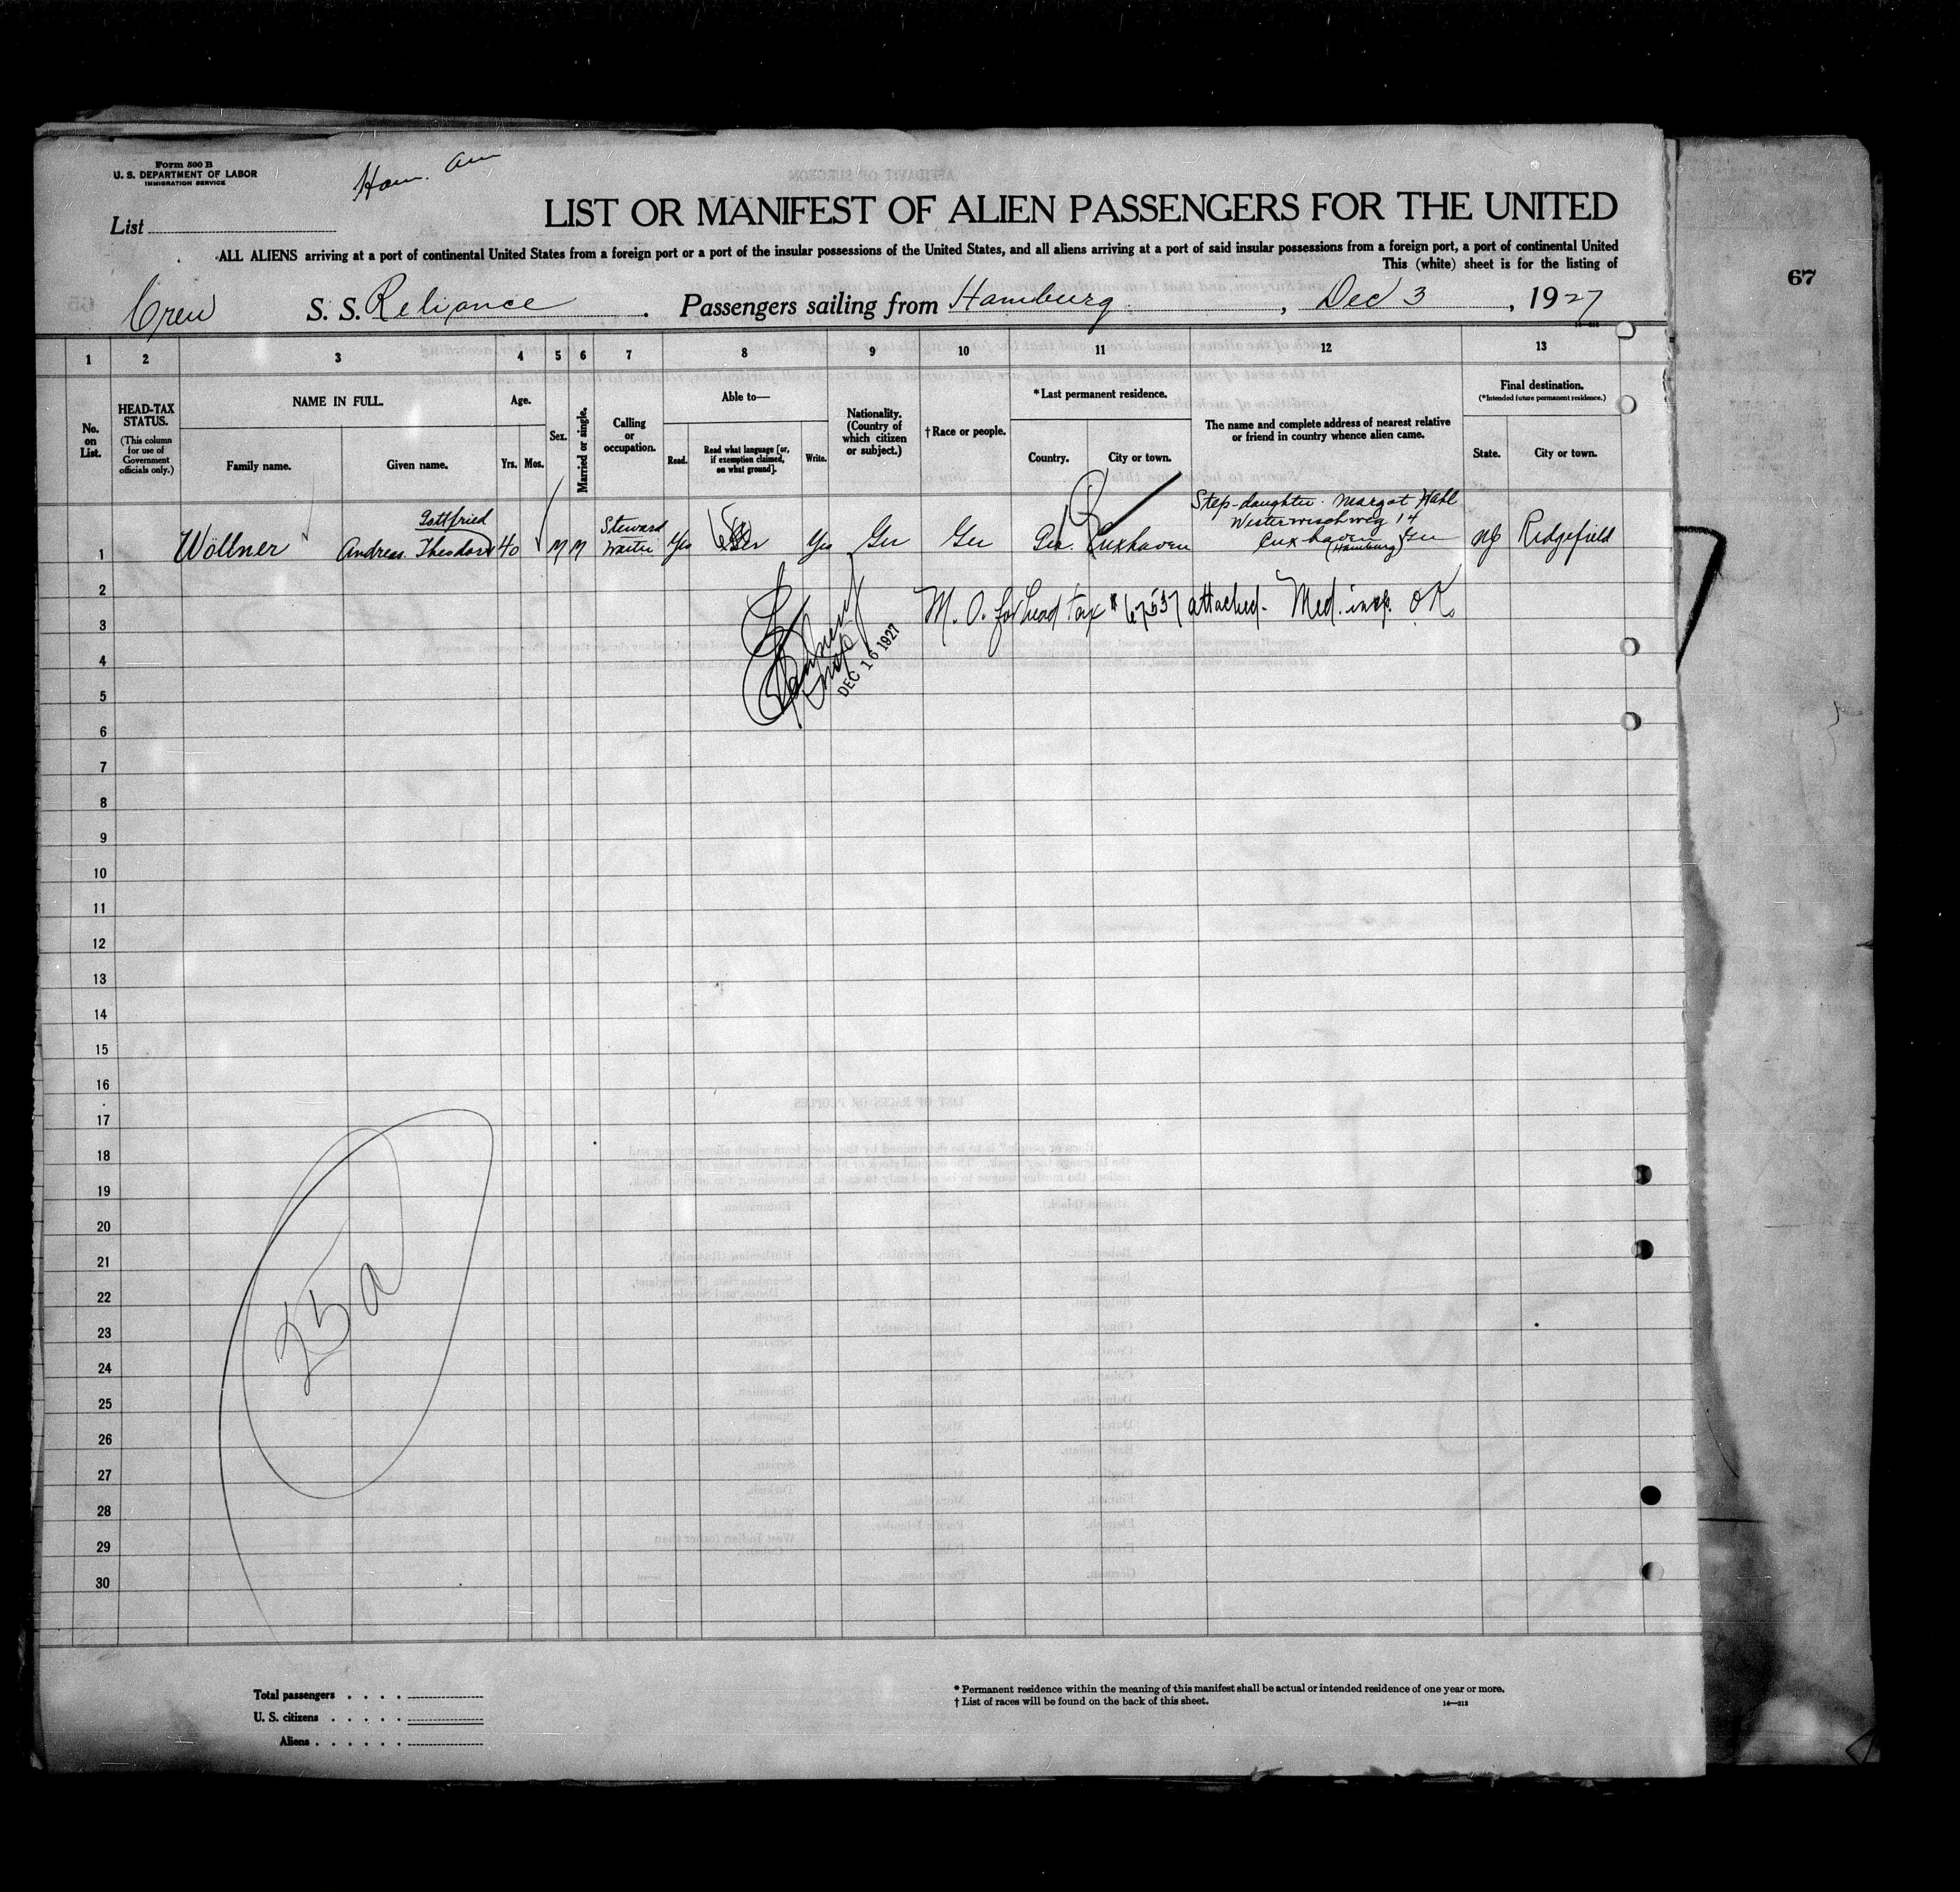 Form 500 B
U. S. DEPARTMENT OF LABOR
IMMIGRATION SERVICE
Ham. Am
LIST OR MANIFEST OF ALIEN PASSENGERS FOR THE UNITED
List
ALL ALIENS arriving at a port of continental United States from a foreign port or a port of the insular possessions of the United States, and all aliens arriving at a port of said insular possessions from a foreign port, a port of continental United
This (white) sheet is for the listing of
67
Crew S. S. Reliance . Passengers sailing from Hamburg , Dec 3 , 1927
1 2 3 4 5 6 7 8 9 10 11 12 13
No. on List.
HEAD-TAX STATUS.
(This column for use of Government officials only.)
NAME IN FULL.
Family name.
Given name.
Age.
Yrs. Mos.
Sex.
Married or single.
Calling or occupation.
Able to—
Read.
Read what language [or, if exemption claimed, on what ground].
Write.
Nationality. (Country of which citizen or subject.)
† Race or people.
* Last permanent residence.
Country.
City or town.
The name and complete address of nearest relative or friend in country whence alien came.
Final destination.
(* Intended future permanent residence.)
State.
City or town.
Step-daughter Margot Hahl
Gottfried Steward Westerwischweg 14
1 Wöllner Andreas Theodor 40 M M waiter Yes Ger Yes Ger Ger Ger. Cuxhaven Cuxhaven Ger NJ Ridgefield
(Hamburg)
2
M. O. for head tax # 67537 attached. Med. insp. OK
3
DEC 16 1927
4
5
6
7
8
9
10
11
12
13
14
15
16
17
18
19
20
21
22
25a
23
24
25
26
27
28
29
30
Total passengers
U. S. citizens
Aliens
* Permanent residence within the meaning of this manifest shall be actual or intended residence of one year or more.
† List of races will be found on the back of this sheet.
14—213